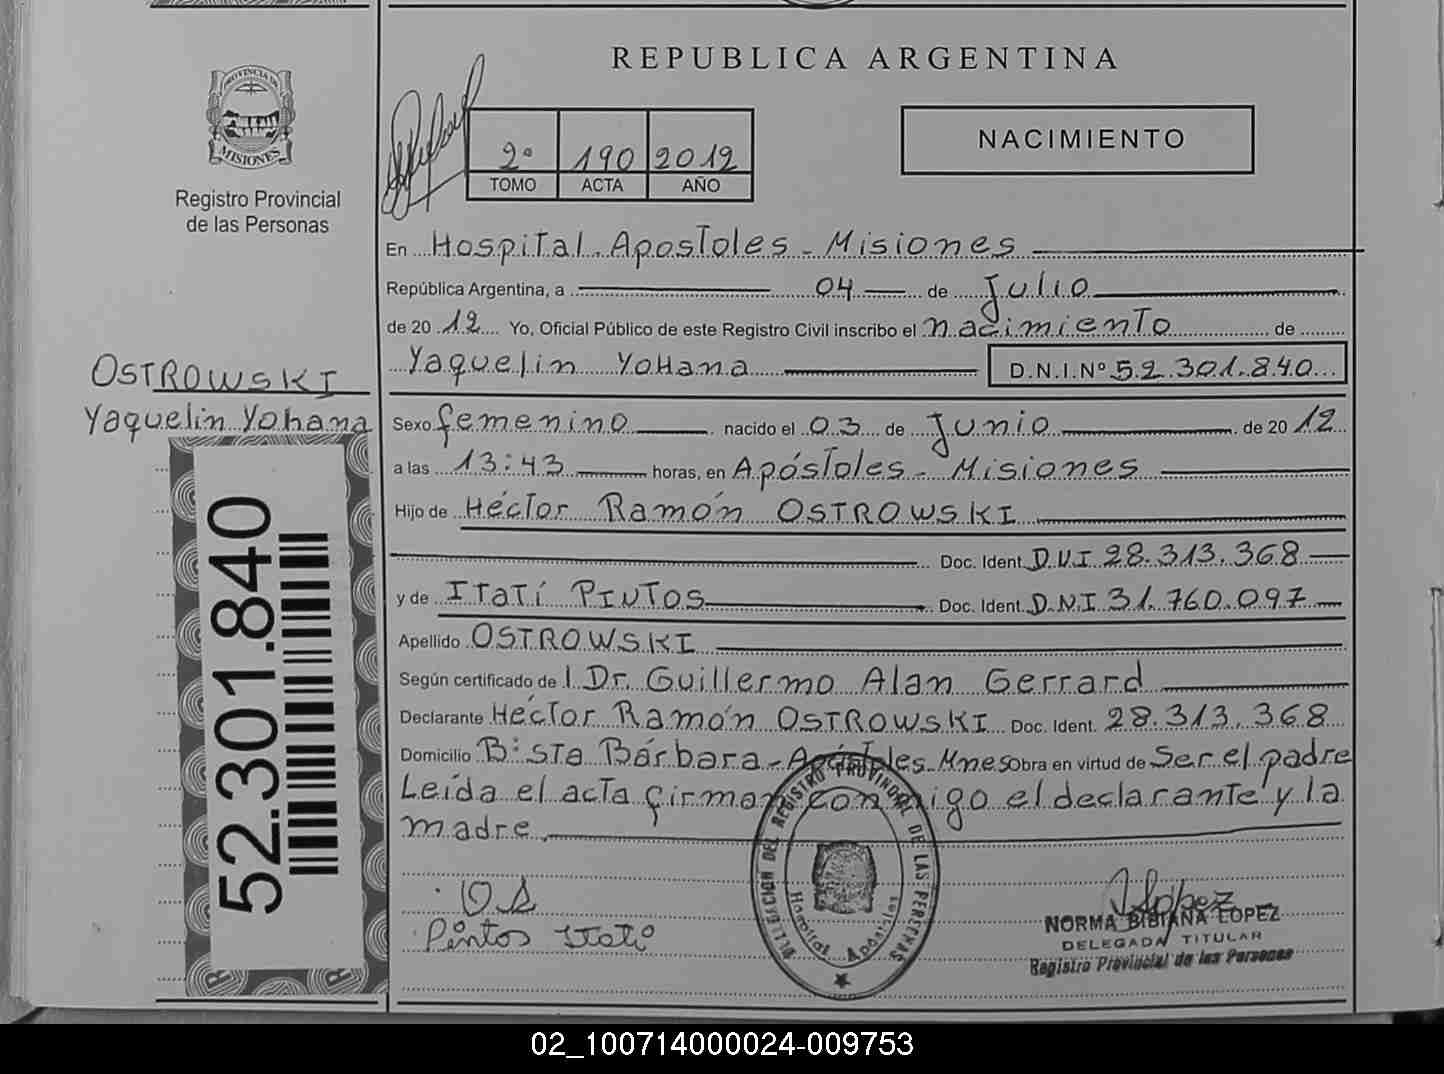 REPUBLICA ARGENTINA
PROVINCIA DE
MISIONES
Registro Provincial
de las Personas
2º 190 2012
TOMO ACTA AÑO
NACIMIENTO
En Hospital. Apostoles - Misiones
República Argentina, a 04 de Julio
de 2012 Yo, Oficial Público de este Registro Civil inscribo el nacimiento de
Yaquelin Yohana D.N.I.Nº 52.301.840
OSTROWSKI
Yaquelin Yohana
Sexo femenino nacido el 03 de Junio de 2012
a las 13:43 horas, en Apóstoles - Misiones
Hijo de Héctor Ramón OSTROWSKI
Doc. Ident. D.N.I 28.313.368
y de Itatí PINTOS Doc. Ident. D.N.I 31.760.097
Apellido OSTROWSKI
Según certificado de l Dr. Guillermo Alan Gerrard
Declarante Héctor Ramón OSTROWSKI Doc. Ident. 28.313.368
Domicilio Bº Sta Bárbara - Apóstoles. Mnes Obra en virtud de Ser el padre
Leída el acta firman conmigo el declarante y la
madre.
52.301.840
O S
Pintos Itatí
DELEGACION DEL REGISTRO PROVINCIAL DE LAS PERSONAS
Hospital Apóstoles
López
NORMA BIBIANA LOPEZ
DELEGADA TITULAR
Registro Provincial de las Personas
02_100714000024-009753